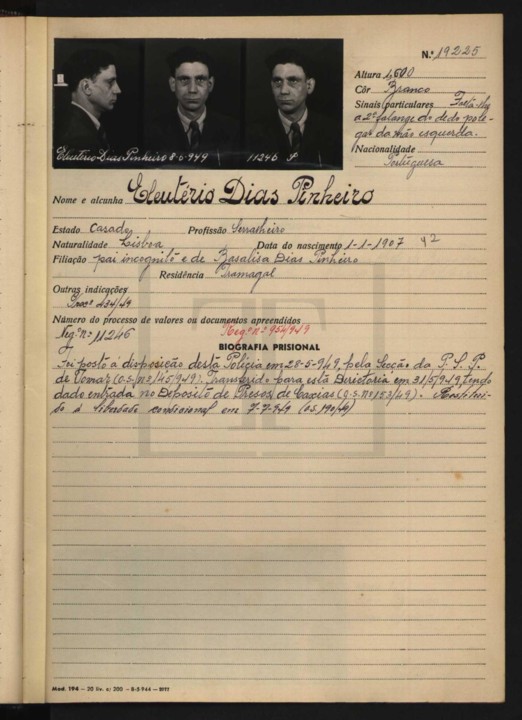 N.º 19225
Altura 1,600
Côr Branco
Sinais particulares Falta-lhe
a 2ª falange do dedo pole-
gar da mão esquerda.
Nacionalidade
Portuguesa
Eleutério Dias Pinheiro 8-6-949 11246 S
Nome e alcunha Eleutério Dias Pinheiro
Estado Casado Profissão Serralheiro
Naturalidade Lisboa Data do nascimento 1-1-1907 42
Filiação pai incognito e de Rosalisa Dias Pinheiro
Residência Tramagal
Outras indicações
Procº 434/49
Número do processo de valores ou documentos apreendidos
Reg. Nº 11246 Regº nº 954/949
BIOGRAFIA PRISIONAL
Foi posto à disposição desta Polícia em 28-5-949, pela Secção da P. S. P.
de Tomar (O.S. nº 145/949). Transferido para esta Directoria em 31/5/949, tendo
dado entrada no Depósito de Presos de Caxias (O.S. nº 153/49). Restituí-
do à liberdade condicional em 7-7-949 (O.S. 190/49)
Mod. 194 — 20 liv. c/ 200 — 8-5-944 —